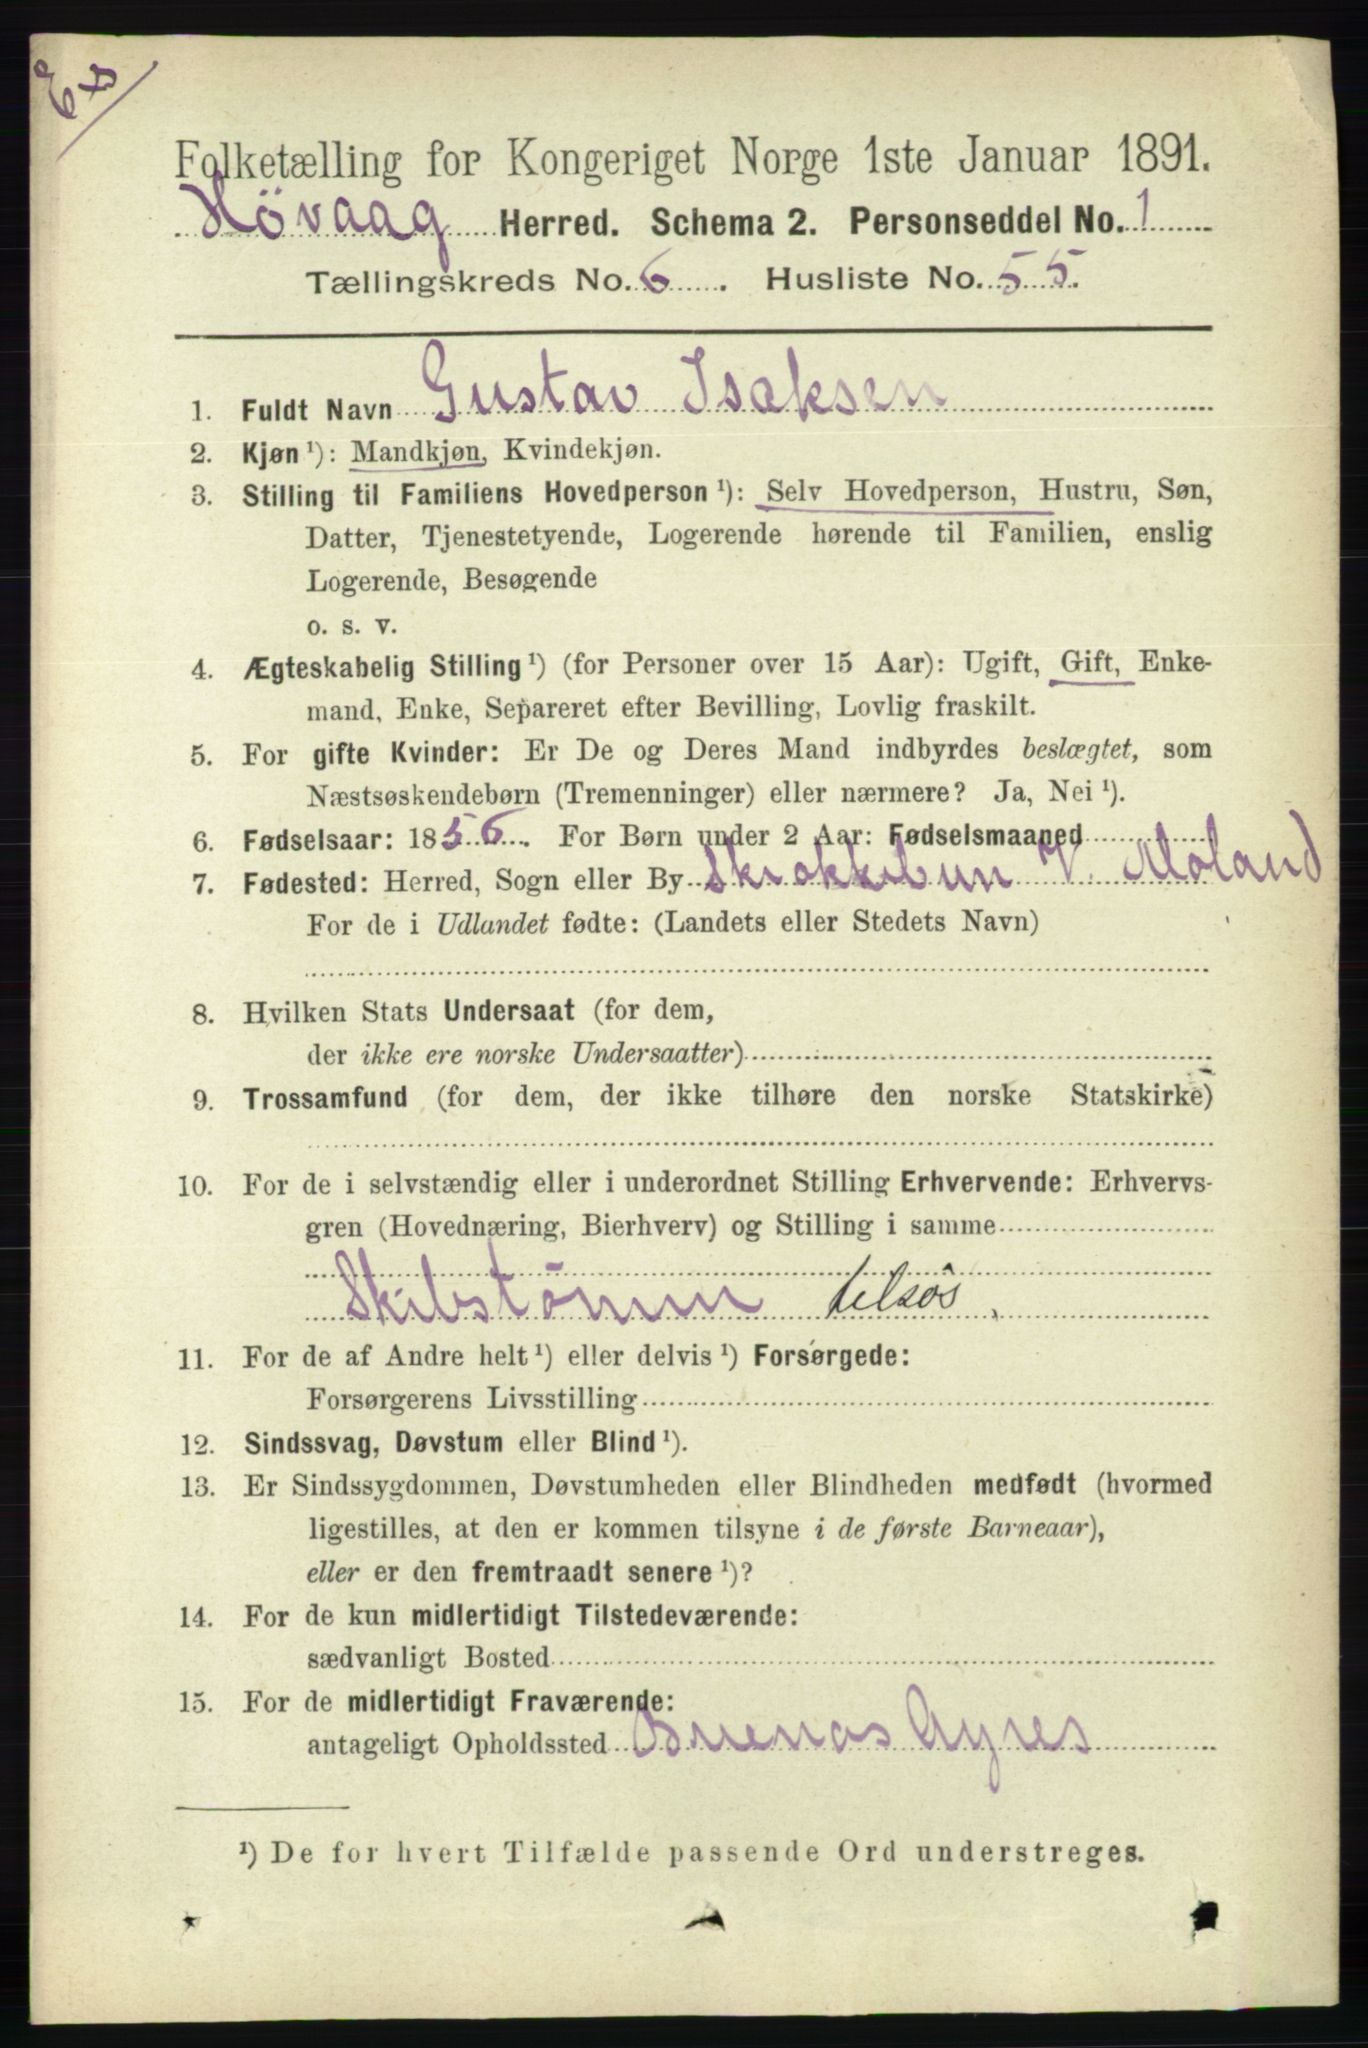 Exs
Folketælling for Kongeriget Norge 1ste Januar 1891.
Høvaag Herred. Schema 2. Personseddel No. 1
Tællingskreds No. 6. Husliste No. 55.
1. Fuldt Navn Gustav Isaksen
2. Kjøn ¹): Mandkjøn, Kvindekjøn.
3. Stilling til Familiens Hovedperson ¹): Selv Hovedperson, Hustru, Søn,
Datter, Tjenestetyende, Logerende hørende til Familien, enslig
Logerende, Besøgende
o. s. v.
4. Ægteskabelig Stilling ¹) (for Personer over 15 Aar): Ugift, Gift, Enke-
mand, Enke, Separeret efter Bevilling, Lovlig fraskilt.
5. For gifte Kvinder: Er De og Deres Mand indbyrdes beslægtet, som
Næstsøskendebørn (Tremenninger) eller nærmere? Ja, Nei ¹).
6. Fødselsaar: 1856. For Børn under 2 Aar: Fødselsmaaned
7. Fødested: Herred, Sogn eller By V. Moland
For de i Udlandet fødte: (Landets eller Stedets Navn)
8. Hvilken Stats Undersaat (for dem,
der ikke ere norske Undersaatter)
9. Trossamfund (for dem, der ikke tilhøre den norske Statskirke)
10. For de i selvstændig eller i underordnet Stilling Erhvervende: Erhvervs-
gren (Hovednæring, Bierhverv) og Stilling i samme
Skibstømm
11. For de af Andre helt ¹) eller delvis ¹) Forsørgede:
Forsørgerens Livsstilling
12. Sindssvag, Døvstum eller Blind ¹).
13. Er Sindssygdommen, Døvstumheden eller Blindheden medfødt (hvormed
ligestilles, at den er kommen tilsyne i de første Barneaar),
eller er den fremtraadt senere ¹)?
14. For de kun midlertidigt Tilstedeværende:
sædvanligt Bosted
15. For de midlertidigt Fraværende:
antageligt Opholdssted Buenos Ayres
¹) De for hvert Tilfælde passende Ord understreges.